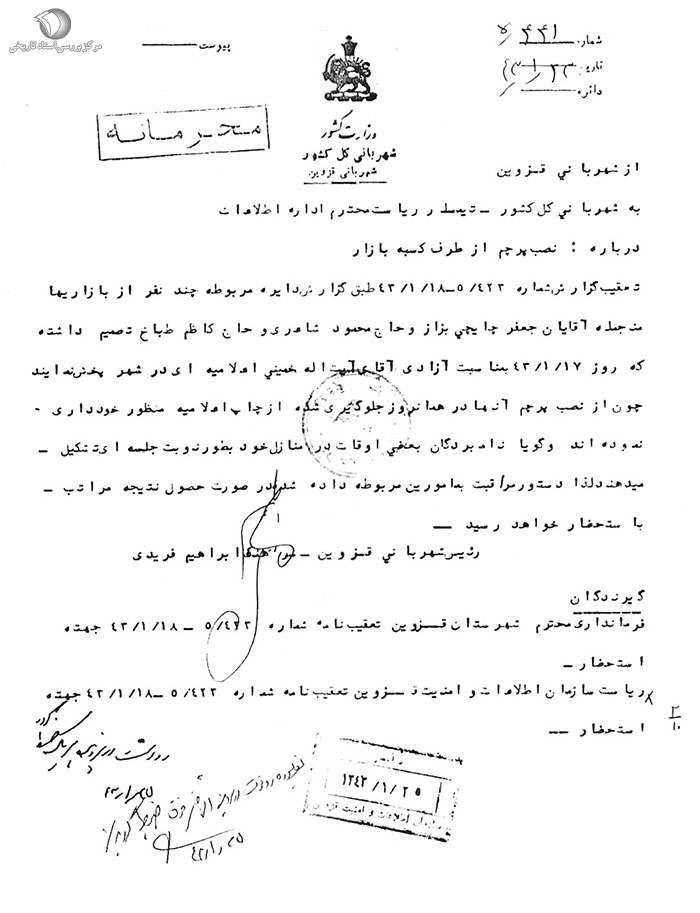 مرکز بررسی اسناد تاریخی
پیوست
شماره ۵/۴۴۱
تاریخ ۴۳/۱/۲۳
دائره
محرمانه
وزارت کشور
شهربانی کل کشور
شهربانی قزوین
از شهربانی قزوین
به شهربانی کل کشور – تیمسار ریاست محترم اداره اطلاعات
درباره : نصب پرچم از طرف کسبه بازار
تعقیب گزارش شماره ۵/۴۲۳–۴۳/۱/۱۸ طبق گزارش دایره مربوطه چند نفر از بازاریها
منجمله آقایان جعفر چایچی بزاز و حاج محمود شاعری و حاج کاظم طباخ تصمیم داشته
که روز ۴۳/۱/۱۷ بمناسبت آزادی آقای آیت اله خمینی اعلامیه ای در شهر پخش نمایند
چون از نصب پرچم آنها در همانروز جلوگیری شده از چاپ اعلامیه منظور خودداری -
نموده اند وگویا نامبردگان بعضی اوقات در منازل خود بطور نوبت جلسه ای تشکیل –
میدهند لذا دستور مراقبت بمامورین مربوطه داده شد در صورت حصول نتیجه مراتب –
باستحضار خواهد رسید –
رئیس شهربانی قزوین – سرهنگ ابراهیم فریدی
گیرندگان
فرمانداری محترم شهرستان قزوین تعقیب نامه شماره ۵/۴۲۳ – ۴۳/۱/۱۸ جهت
استحضار –
ریاست سازمان اطلاعات و امنیت قزوین تعقیب نامه شماره ۵/۴۲۳ –۴۳/۱/۱۸ جهت
استحضار –
۱۳۴۳/۱/۲۵
اطلاعات و امنیت قزوین
۴۳/۱/۲۵